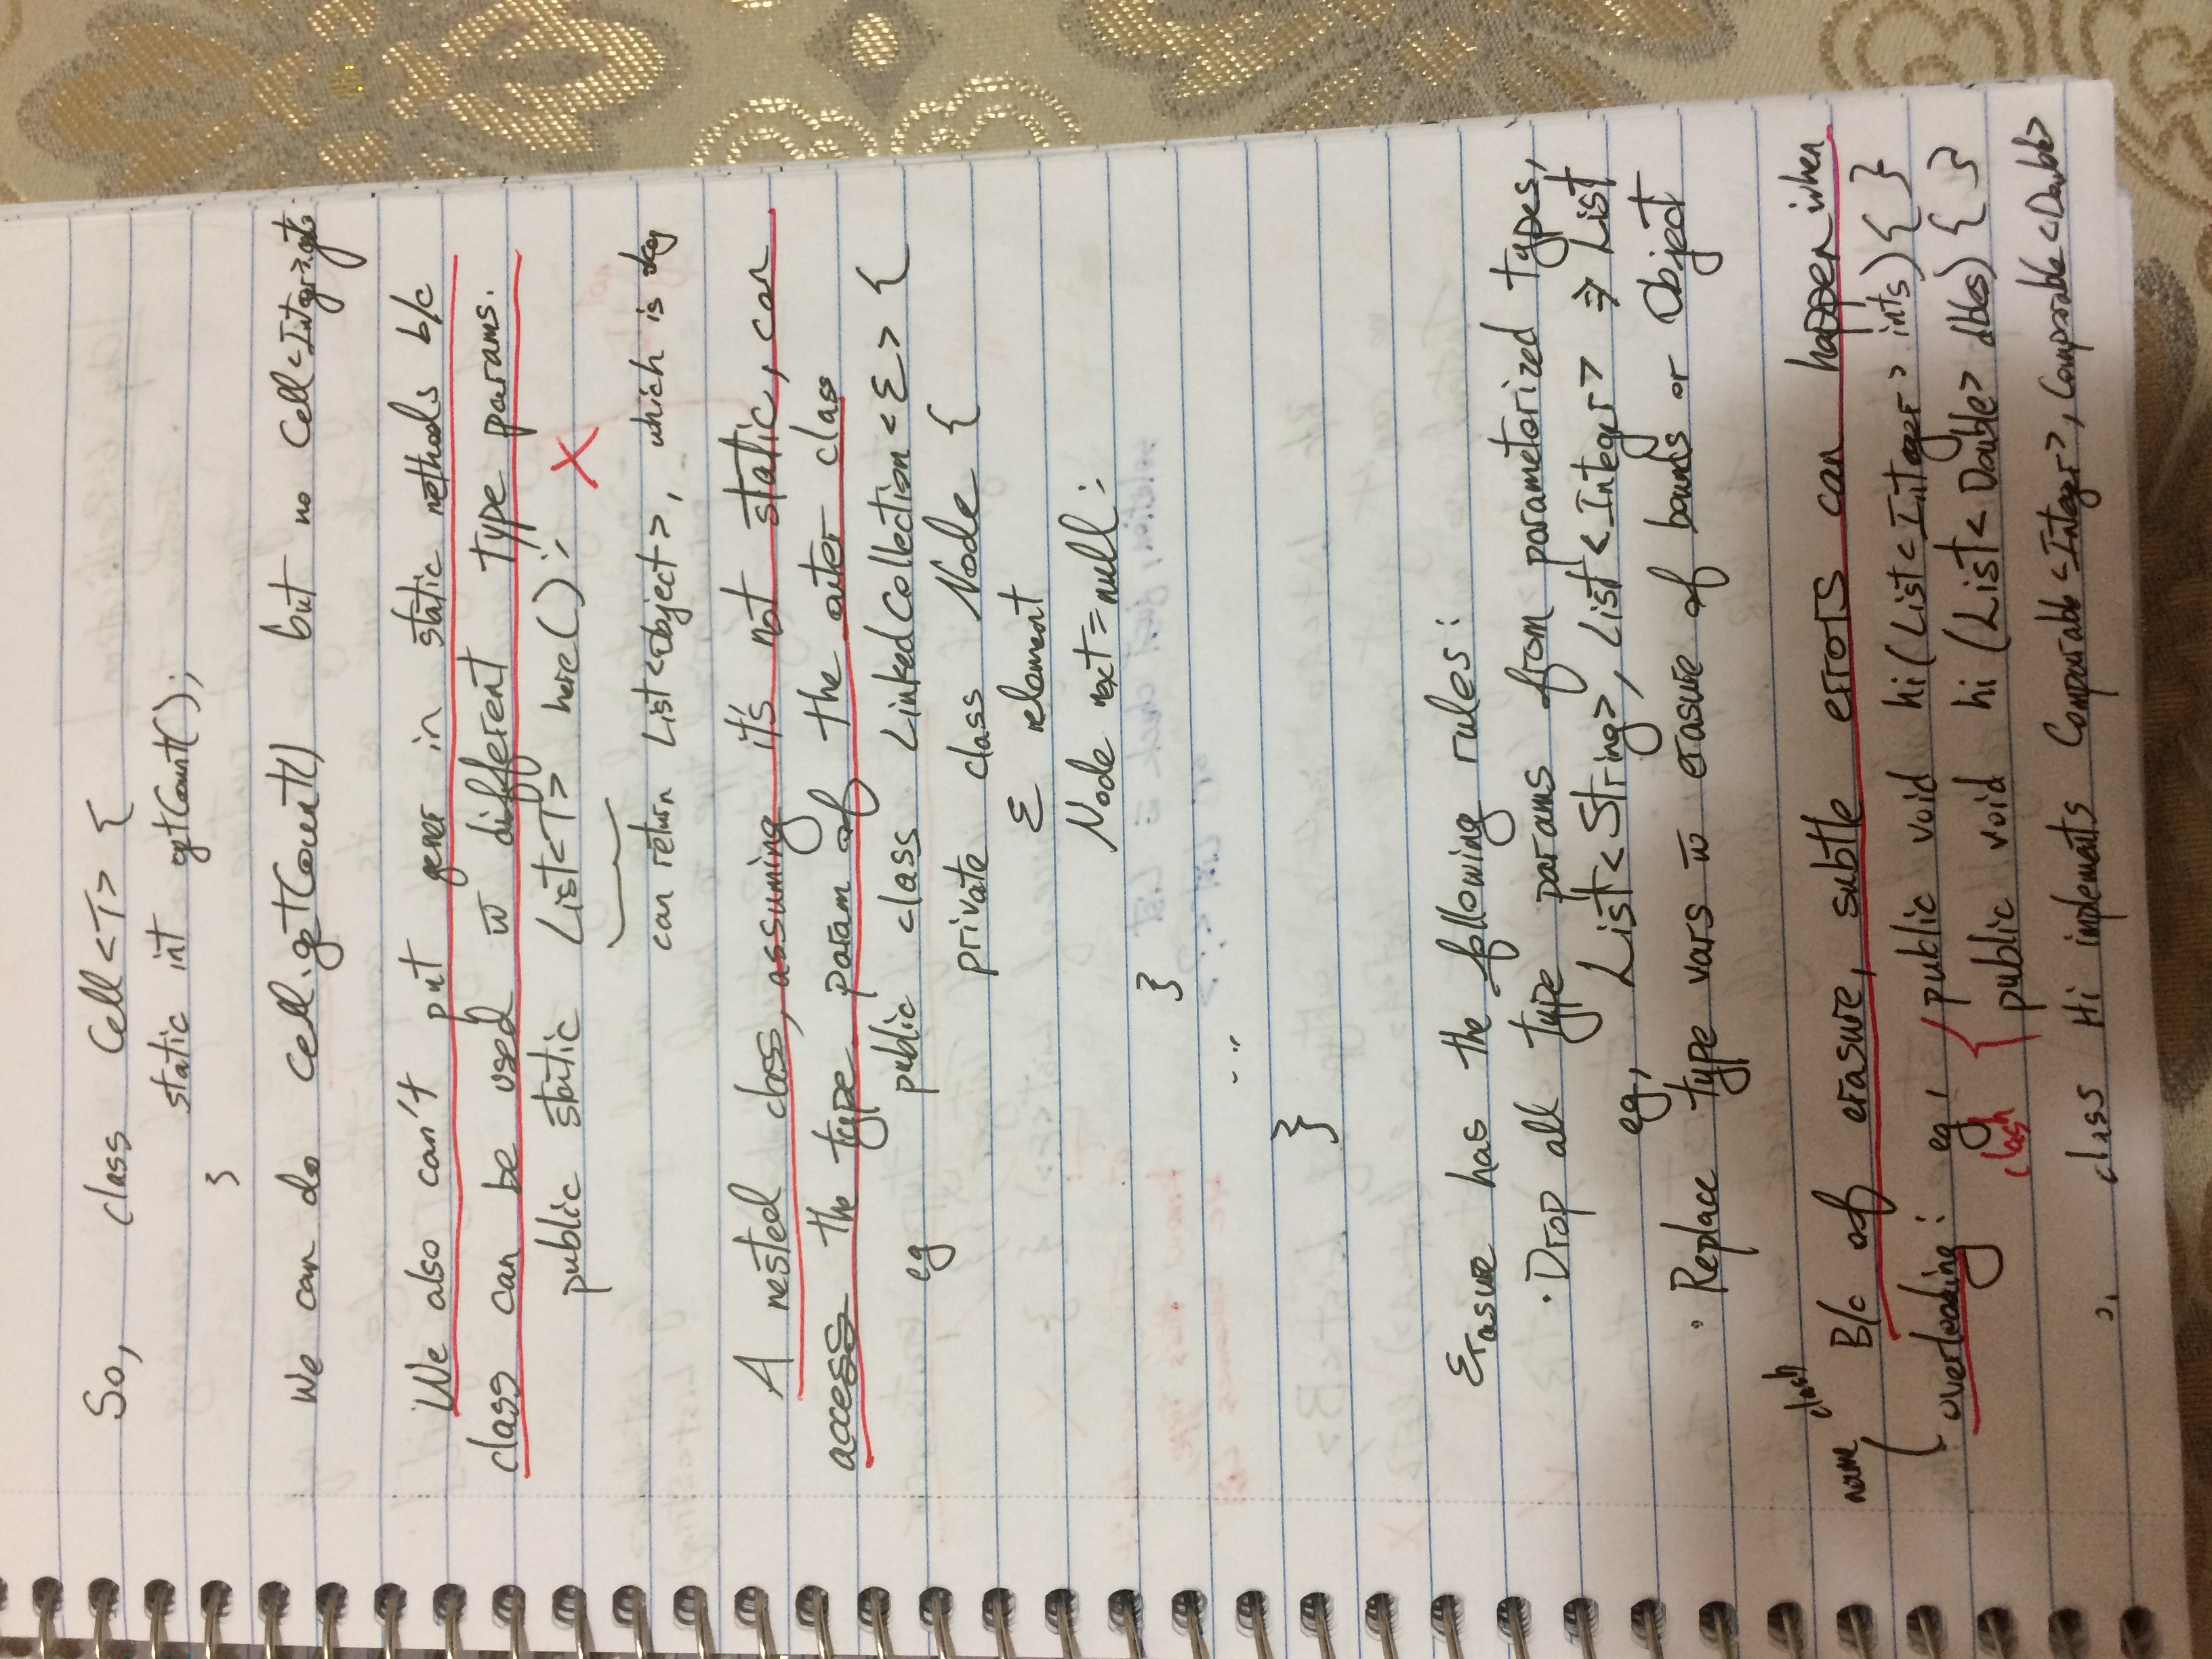 So, class Cell<T> {
static int getCount();
}
We can do Cell.getCount() but no Cell<Integer>.get
We also can't put gener in static methods b/c
class can be used w different type params.
public static List<T> here(); X
can return List<Object>, which is
A nested class, assuming it's not static, can
access the type param of the outer class
eg public class LinkedCollection<E> {
private class Node {
E element
Node next = null;
}
...
}
Erasure has the following rules:
· Drop all type params from parameterized types,
eg, List<String>, List<Integer> ⇒ List
· Replace type vars w erasure of bounds or Object
name clash
B/c of erasure, subtle errors can happen when
overloading: eg, public void hi(List<Integer> ints) { }
clash public void hi (List<Double> dbles) { }
class Hi implements Comparable<Integer>, Comparable<Double>